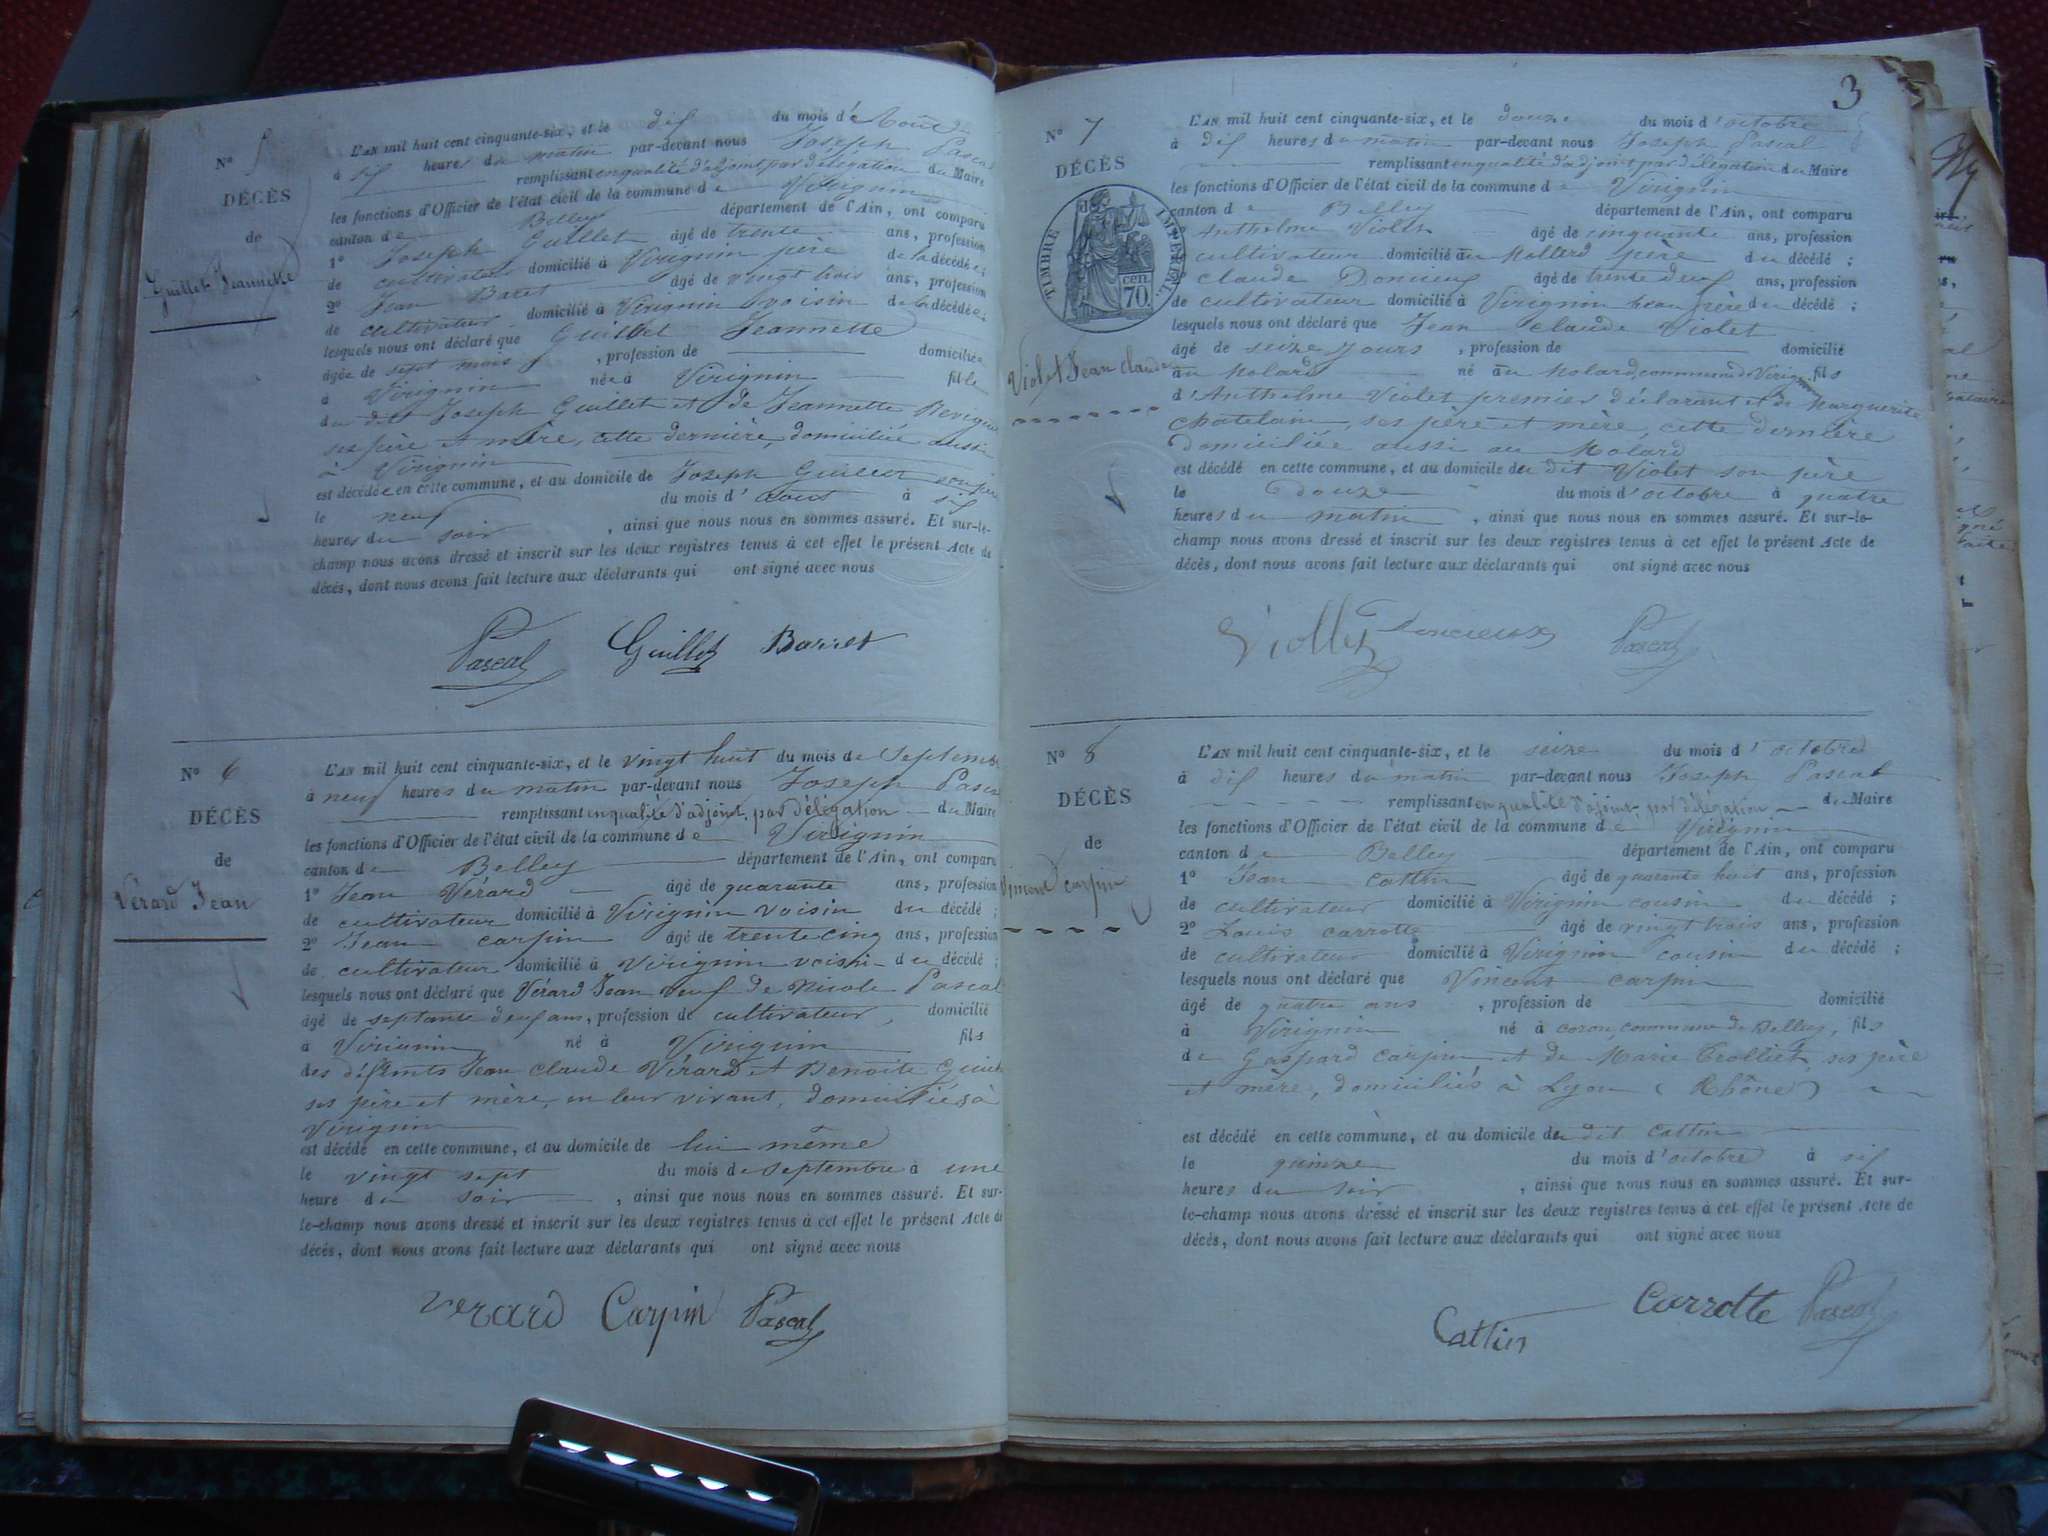 N° 5
DÉCÈS
de
Guillet Jeannette
L'AN mil huit cent cinquante-six, et le dix du mois d'Août
à six heures du matin par-devant nous Joseph Pascal
remplissant en qualité d'adjoint par délégation du Maire
les fonctions d'Officier de l'état civil de la commune de Virignin
canton de Belley département de l'Ain, ont comparu
1° Joseph Guillet âgé de trente ans, profession
de cultivateur domicilié à Virignin père de la décédée;
2° Jean Baret âgé de vingt trois ans, profession
de cultivateur domicilié à Virignin voisin de la décédée;
lesquels nous ont déclaré que Guillet Jeannette
âgée de sept mois, profession de domiciliée
à Virignin née à Virignin fille
du dit Joseph Guillet et de Jeannette
ses père et mère, cette dernière domiciliée aussi
à Virignin
est décédée en cette commune, et au domicile de Joseph Guillet son père
le neuf du mois d'aout à six
heures du soir, ainsi que nous nous en sommes assuré. Et sur-le-
champ nous avons dressé et inscrit sur les deux registres tenus à cet effet le présent Acte de
décès, dont nous avons fait lecture aux déclarants qui ont signé avec nous
Pascal Guillet Barret
N° 6
DÉCÈS
de
Vérard Jean
L'AN mil huit cent cinquante-six, et le vingt huit du mois de Septembre
à neuf heures du matin par-devant nous Joseph Pascal
remplissant en qualité d'adjoint, par délégation du Maire
les fonctions d'Officier de l'état civil de la commune de Virignin
canton de Belley département de l'Ain, ont comparu
1° Jean Vérard âgé de quarante ans, profession
de cultivateur domicilié à Virignin voisin du décédé;
2° Jean carpin âgé de trente cinq ans, profession
de cultivateur domicilié à Virignin voisin du décédé;
lesquels nous ont déclaré que Vérard Jean veuf de Nicole Pascal
âgé de septante deux ans, profession de cultivateur, domicilié
à Virignin né à Virignin fils
des défunts Jean claude Vérard et Benoite
ses père et mère, en leur vivant, domiciliés à
Virignin
est décédé en cette commune, et au domicile de lui même
le vingt sept du mois de septembre à une
heure du soir, ainsi que nous nous en sommes assuré. Et sur-
le-champ nous avons dressé et inscrit sur les deux registres tenus à cet effet le présent Acte de
décès, dont nous avons fait lecture aux déclarants qui ont signé avec nous
Verard Carpin Pascal
3
N° 7
DÉCÈS
de
TIMBRE IMPÉRIAL
70 cen
Violet Jean claude
L'AN mil huit cent cinquante-six, et le douze du mois d'octobre
à dix heures du matin par-devant nous Joseph Pascal
remplissant en qualité d'adjoint par délégation du Maire
les fonctions d'Officier de l'état civil de la commune de Virignin
canton de Belley département de l'Ain, ont comparu
Anthelme Violet âgé de cinquante ans, profession
cultivateur domicilié au Mollard père du décédé;
claude âgé de trente deux ans, profession
de cultivateur domicilié à Virignin beau frère du décédé;
lesquels nous ont déclaré que Jean claude Violet
âgé de seize jours, profession de domicilié
au Molard né au Molard, commune de Virignin fils
d'Anthelme Violet premier déclarant et de Marguerite
chatelain, ses père et mère, cette dernière
domiciliée aussi au Molard
est décédé en cette commune, et au domicile du dit Violet son père
le douze du mois d'octobre à quatre
heures du matin, ainsi que nous nous en sommes assuré. Et sur-le-
champ nous avons dressé et inscrit sur les deux registres tenus à cet effet le présent Acte de
décès, dont nous avons fait lecture aux déclarants qui ont signé avec nous
Viollet Doncieux Pascal
N° 8
DÉCÈS
de
Vincent carpin
L'AN mil huit cent cinquante-six, et le seize du mois d'octobre
à dix heures du matin par-devant nous Joseph Pascal
remplissant en qualité d'adjoint, par délégation du Maire
les fonctions d'Officier de l'état civil de la commune de Virignin
canton de Belley département de l'Ain, ont comparu
1° Jean cattin âgé de quarante huit ans, profession
de cultivateur domicilié à Virignin cousin du décédé;
2° Louis carrotte âgé de vingt trois ans, profession
de cultivateur domicilié à Virignin cousin du décédé;
lesquels nous ont déclaré que Vincent carpin
âgé de quatre ans, profession de domicilié
à Virignin né à coron, commune de Belley, fils
de Gaspard carpin et de Marie Trolliet ses père
et mère, domiciliés à Lyon (Rhône)
est décédé en cette commune, et au domicile du dit cattin
le quinze du mois d'octobre à six
heures du soir, ainsi que nous nous en sommes assuré. Et sur-
le-champ nous avons dressé et inscrit sur les deux registres tenus à cet effet le présent Acte de
décès, dont nous avons fait lecture aux déclarants qui ont signé avec nous
Cattin Carrotte Pascal